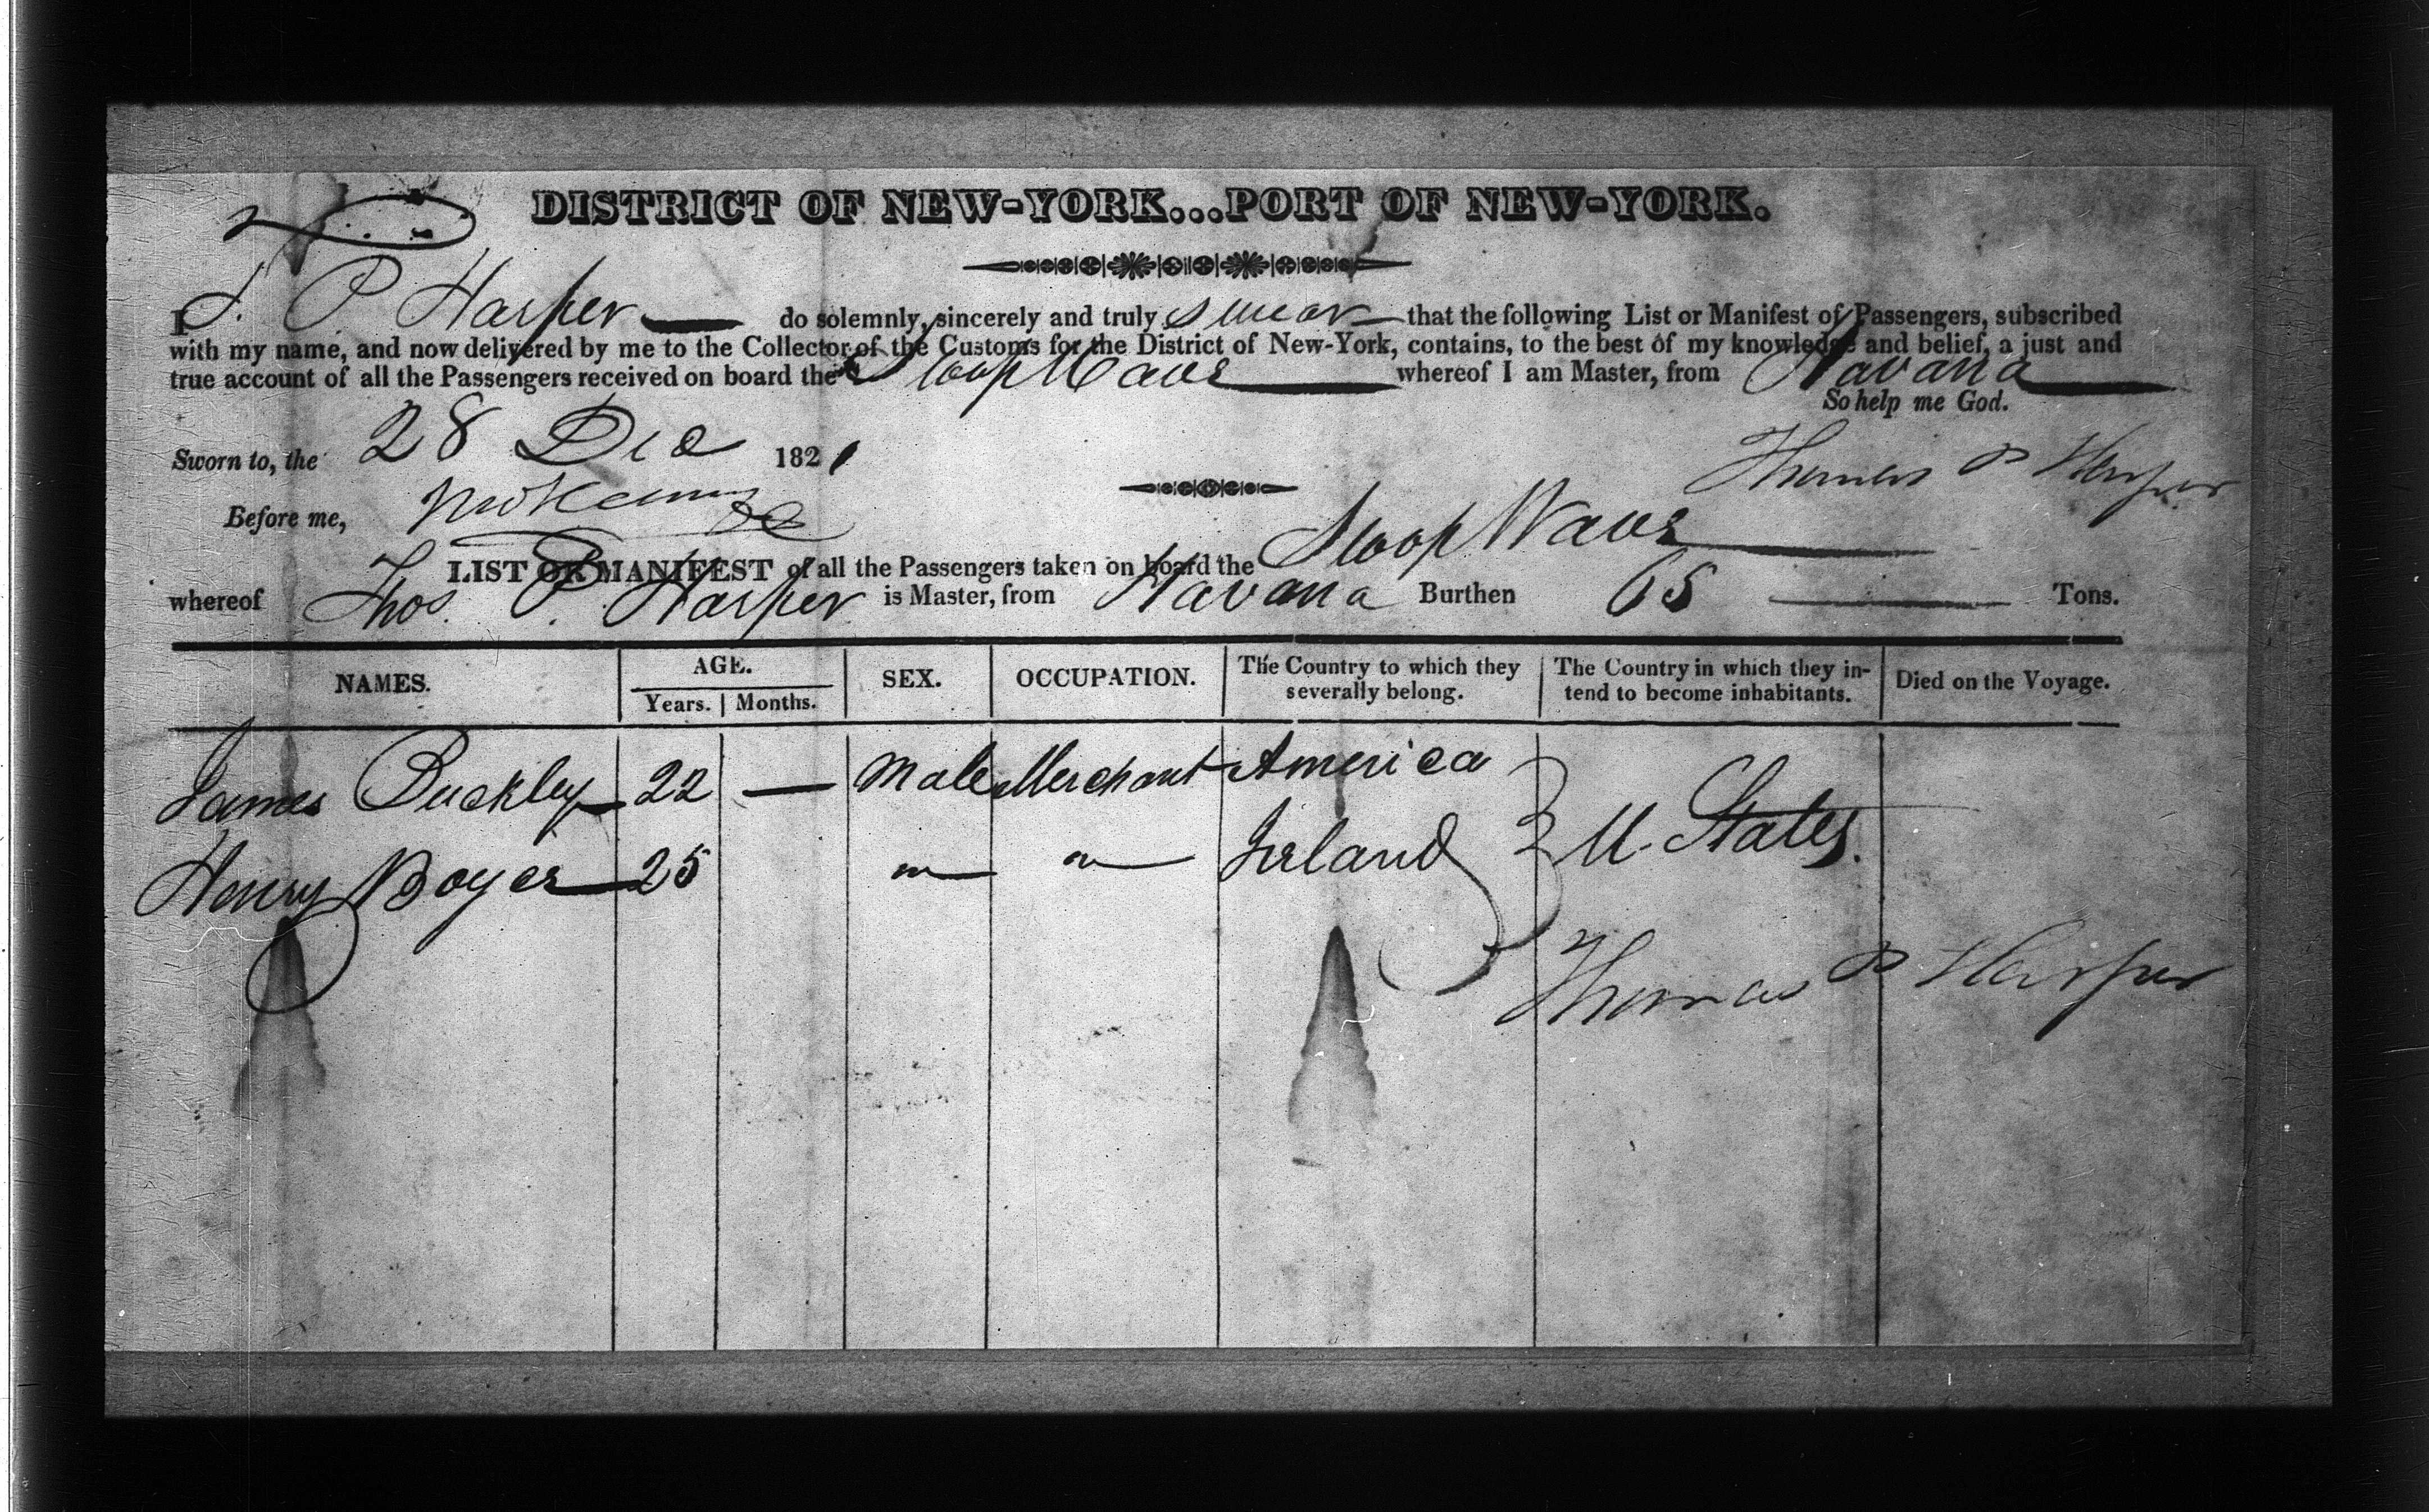 DISTRICT OF NEW-YORK...PORT OF NEW-YORK.
I T. P Harper do solemnly, sincerely and truly swear that the following List or Manifest of Passengers, subscribed
with my name, and now delivered by me to the Collector of the Customs for the District of New-York, contains, to the best of my knowledge and belief, a just and
true account of all the Passengers received on board the Sloop Wave whereof I am Master, from Havana
So help me God.
Sworn to, the 28 Dec 1821
Thomas P Harper
Before me,
LIST OR MANIFEST of all the Passengers taken on board the Sloop Wave
whereof Thos. P. Harper is Master, from Havana Burthen 65 Tons.
NAMES. AGE. Years. Months. SEX. OCCUPATION. The Country to which they severally belong. The Country in which they in-tend to become inhabitants. Died on the Voyage.
James Buckley 22 — Male Merchant America
Henry Boyer 25 " " Irland U. States.
Thomas P Harper